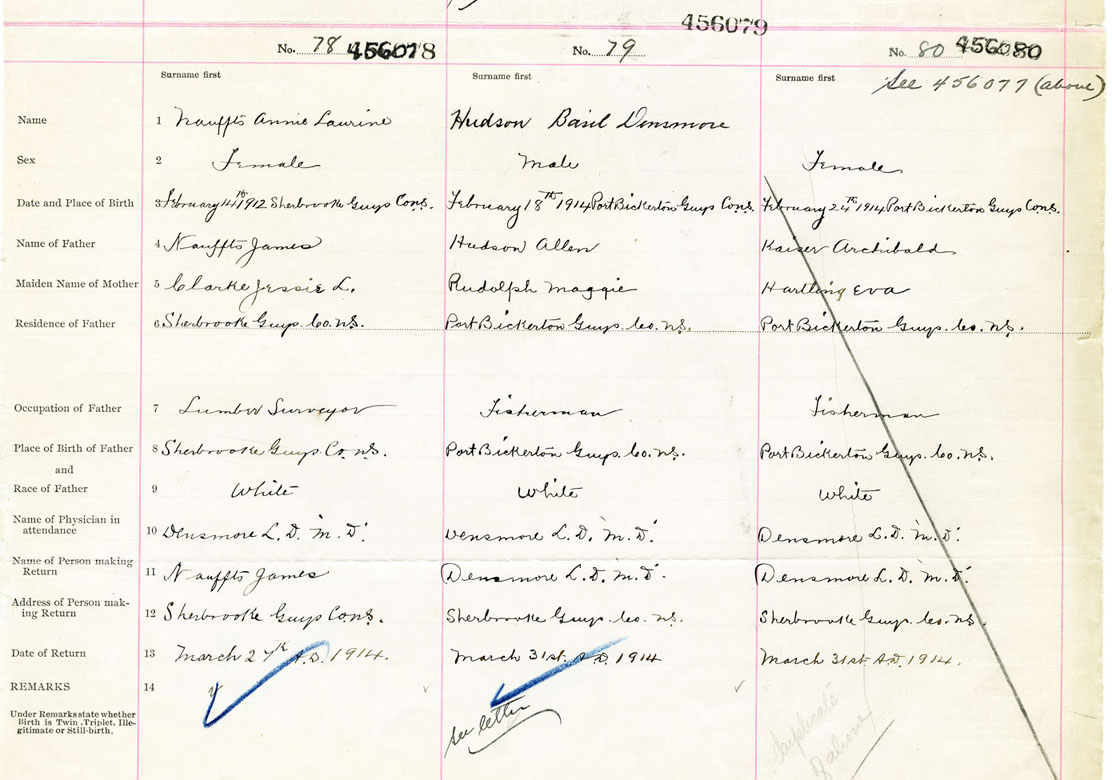 456079
No. 78 456078 No. 79 No. 80 456080
Surname first Surname first Surname first See 456077 (above)
Name 1 Nauffts Annie Laurine Hudson Basil Densmore
Sex 2 Female Male Female
Date and Place of Birth 3 February 14th 1912 Sherbrooke Guys Co n.s. February 18th 1914 Port Bickerton Guys Co n.s. February 24th 1914 Port Bickerton Guys Co n.s.
Name of Father 4 Nauffts James Hudson Allen Kaiser Archibald
Maiden Name of Mother 5 Clarke Jessie L. Rudolph Maggie Hartling Eva
Residence of Father 6 Sherbrooke Guys. Co. n.s. Port Bickerton Guys. Co. n.s. Port Bickerton Guys. Co. n.s.
Occupation of Father 7 Lumber Surveyor Fisherman Fisherman
Place of Birth of Father 8 Sherbrooke Guys. Co. n.s. Port Bickerton Guys. Co. n.s. Port Bickerton Guys. Co. n.s.
and
Race of Father 9 White White White
Name of Physician in
attendance 10 Densmore L. D. M. D. Densmore L. D. M. D. Densmore L. D. M. D.
Name of Person making
Return 11 Nauffts James Densmore L. D. M. D. Densmore L. D. M. D.
Address of Person mak-
ing Return 12 Sherbrooke Guys Co. n.s. Sherbrooke Guys. Co. n.s. Sherbrooke Guys. Co. n.s.
Date of Return 13 March 27th A.D. 1914. March 31st A.D. 1914 March 31st A.D. 1914.
REMARKS 14
Under Remarks state whether
Birth is Twin, Triplet, Ille-
gitimate or Still-birth.
see letter
Duplicate